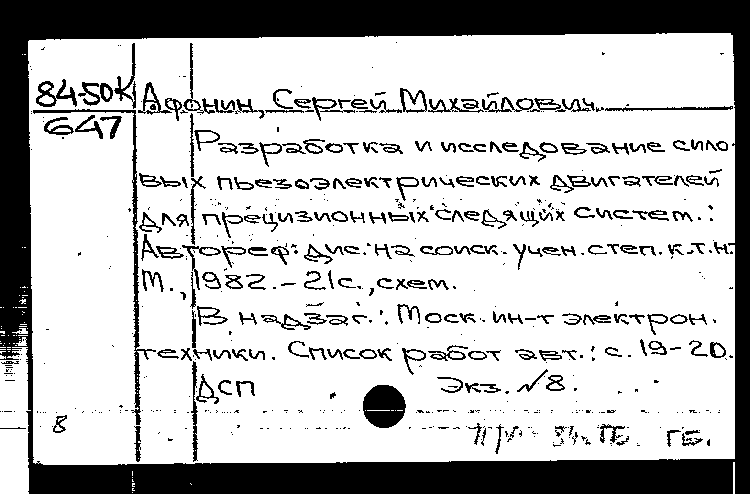 84-50К Афонин, Сергей Михайлович
647
Разработка и исследование сило-
вых пьезоэлектрических двигателей
для прецизионных следящих систем.:
Автореф. дис. на соиск. учен. степ. к.т.н.
М., 1982. - 21с., схем.
В надзаг.: Моск. ин-т электрон.
техники. Список работ авт.: с. 19-20.
ДСП Экз. №8.
8
84. ГБ. ГБ.